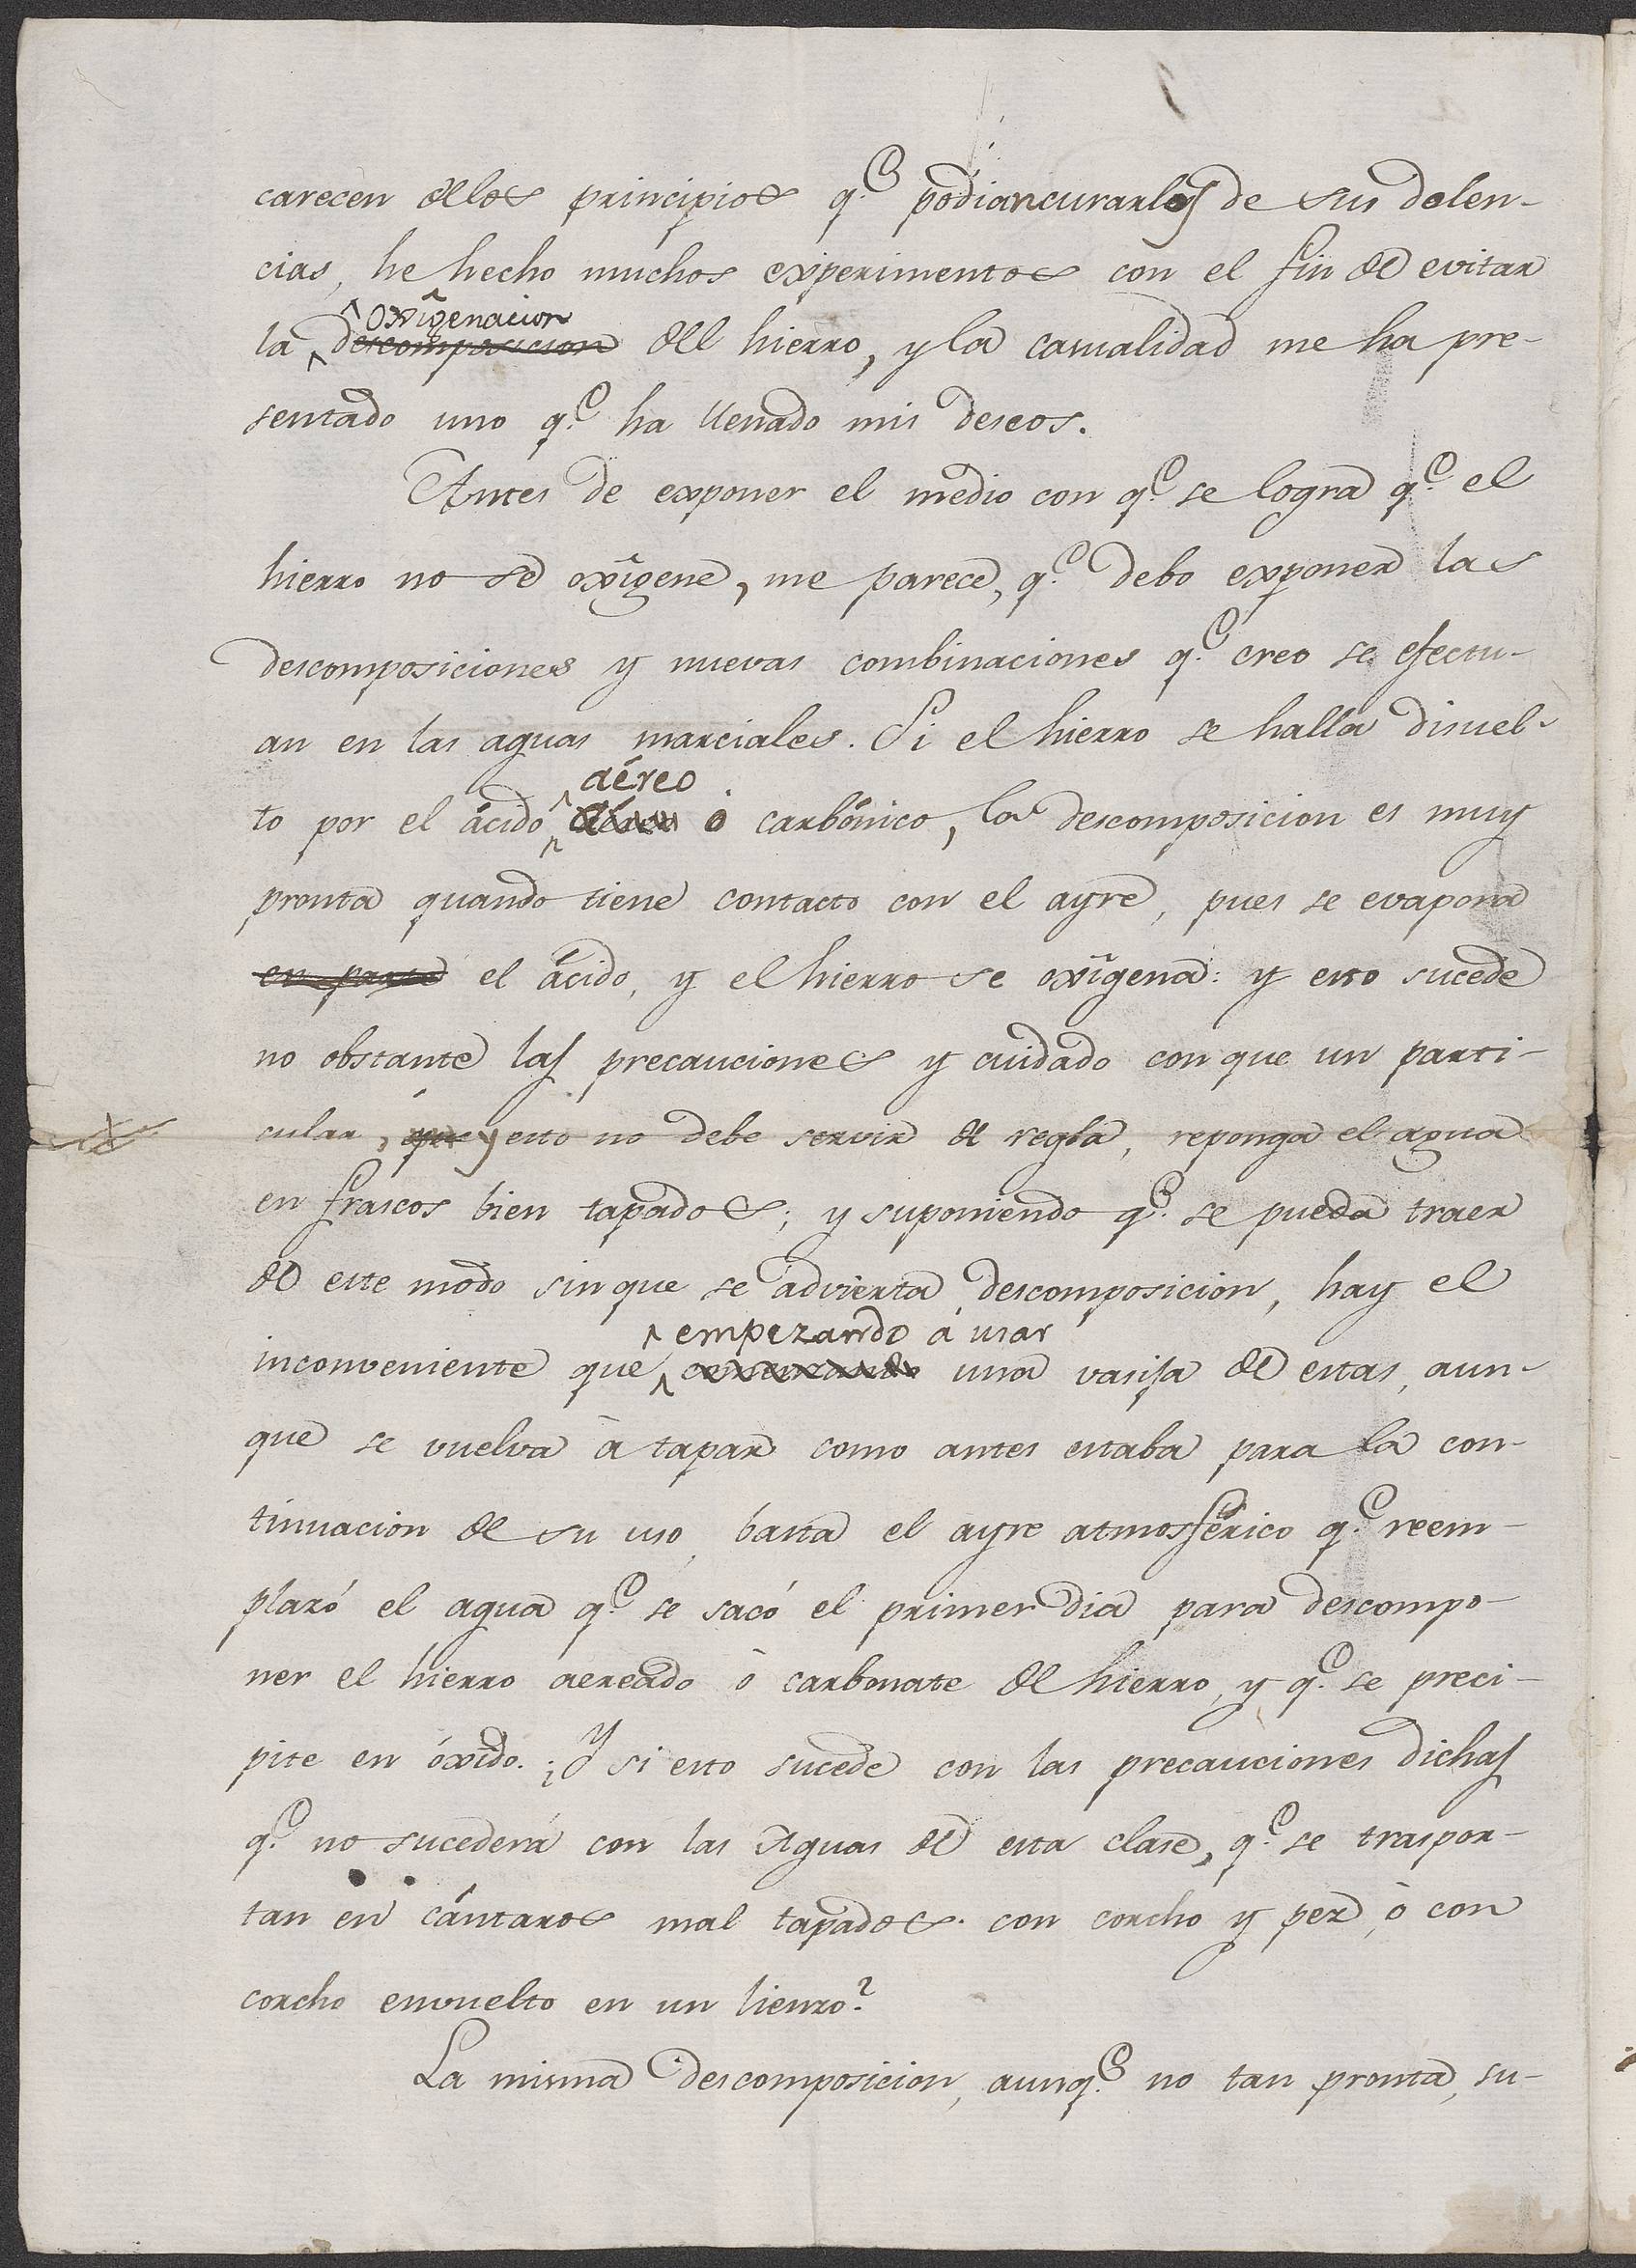 carecen de los principios q.e podian curarlos de sus dolen-
cias, he hecho muchos experimentos con el fin de evitar
oxîgenacion
la descomposicion del hierro, y la casualidad me ha pre-
sentado uno q.e ha llenado mis deseos.
Antes de exponer el medio con q.e se logra q.e el
hierro no se oxîgene, me parece, q.e debo exponer las
descomposiciones y nuevas combinaciones q.e creo se efectu-
an en las aguas marciales. Si el hierro se halla disuel-
aéreo
to por el ácido ó carbónico, la descomposicion es muy
pronta quando tiene contacto con el ayre, pues se evapora
en parte el ácido, y el hierro se oxîgena: y esto sucede
no obstante las precauciones y cuidado con que un parti-
cular, que y esto no debe servir de regla, reponga el agua
en frascos bien tapados; y suponiendo q.e se pueda traer
de este modo sin que se advierta descomposicion, hay el
empezando á usar
inconveniente que comenzando una vasija de estas, aun-
que se vuelva à tapar como antes estaba para la con-
tinuacion de su uso, basta el ayre atmosférico q.e reem-
plazó el agua q.e se sacó el primer dia para descompo-
ner el hierro aereado ò carbonate de hierro, y q.e se preci-
pite en óxido. ¿Y si esto sucede con las precauciones dichas
q.e no sucederá con las Aguas de esta clase, q.e se traspor-
tan en cántaros mal tapados con corcho y pez, ò con
corcho envuelto en un lienzo?
La misma descomposicion, aunq.e no tan pronta, su-